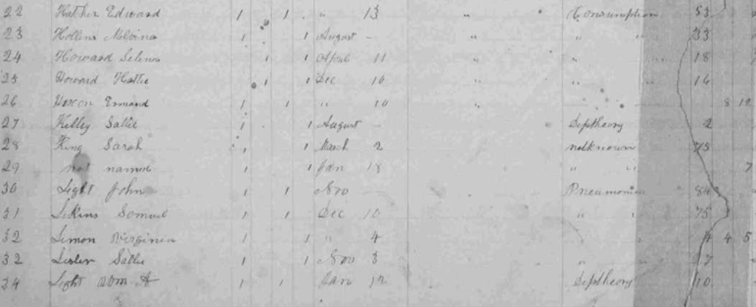 22 Hather Edward 1 1 " 13 " " Consumption 53
23 Hollins Melvina 1 1 August - " " " 33
24 Howard Selina 1 1 April 11 " " " 18
25 Howard Hattie 1 1 Dec 16 " " " 16
26 Ermend 1 1 " 10 " " 8
27 Kelley Sallie 1 1 August - " Diptheory 2
28 King Sarah 1 1 March 2 " notknown 75
29 not named 1 1 Jan 18 " " " 7
30 Light John 1 1 Nov - " Pneumonia 84
31 Likins Somuel 1 1 Dec 10 " " " 75
32 Limon Virginia 1 1 " 4 " " " 4 5
32 Lister Sallie 1 1 Nov 3 " " "
34 Light Wm A 1 1 Jan 12 Diptheory 10